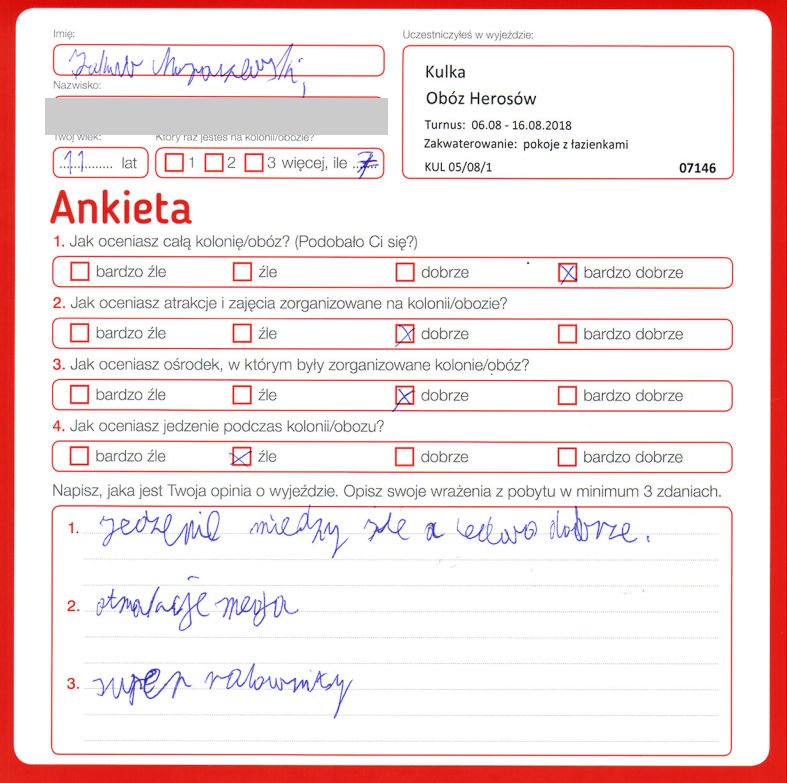 Imię:
Uczestniczyłeś w wyjeździe:
Jakub
Kulka
Nazwisko:
Obóz Herosów
Turnus: 06.08 - 16.08.2018
Zakwaterowanie: pokoje z łazienkami
KUL 05/08/1 07146
Twój wiek: Który raz jesteś na kolonii/obozie?
11 lat 1 2 3 więcej, ile 7
Ankieta
1. Jak oceniasz całą kolonię/obóz? (Podobało Ci się?)
bardzo źle źle dobrze bardzo dobrze
2. Jak oceniasz atrakcje i zajęcia zorganizowane na kolonii/obozie?
bardzo źle źle dobrze bardzo dobrze
3. Jak oceniasz ośrodek, w którym były zorganizowane kolonie/obóz?
bardzo źle źle dobrze bardzo dobrze
4. Jak oceniasz jedzenie podczas kolonii/obozu?
bardzo źle źle dobrze bardzo dobrze
Napisz, jaka jest Twoja opinia o wyjeździe. Opisz swoje wrażenia z pobytu w minimum 3 zdaniach.
1. jedzenie między źle a ledwo dobrze.
2. mega
3. super ratownicy